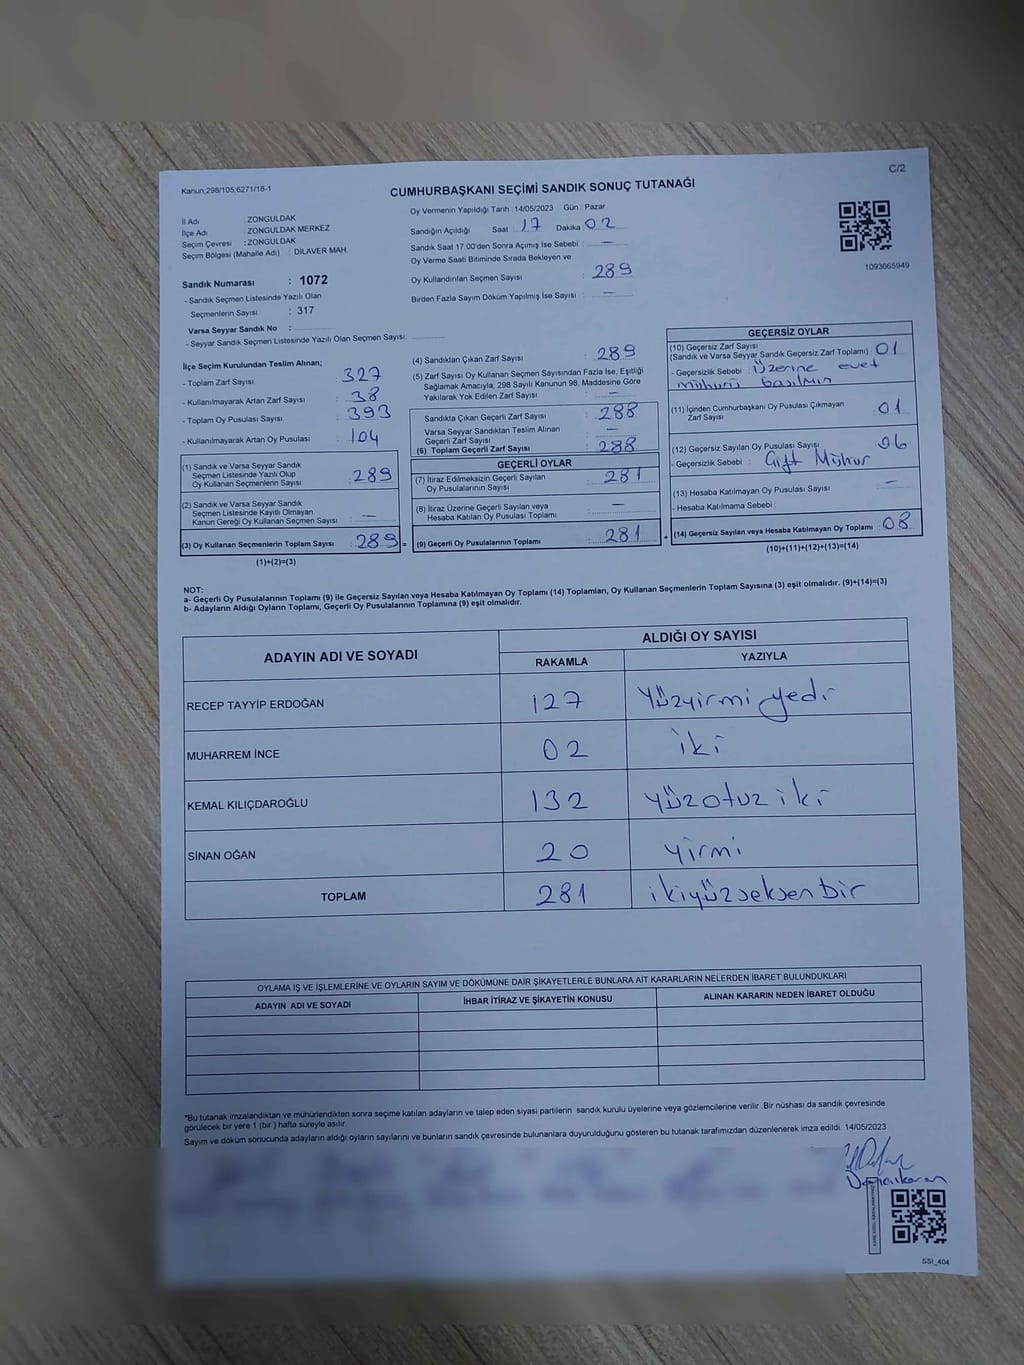 Kanun;298/105;6271/18-1
C/2
CUMHURBAŞKANI SEÇİMİ SANDIK SONUÇ TUTANAĞI
İl Adı : ZONGULDAK
İlçe Adı : ZONGULDAK MERKEZ
Seçim Çevresi : ZONGULDAK
Seçim Bölgesi (Mahalle Adı) : DİLAVER MAH.
Sandık Numarası : 1072
- Sandık Seçmen Listesinde Yazılı Olan
Seçmenlerin Sayısı : 317
Varsa Seyyar Sandık No :
- Seyyar Sandık Seçmen Listesinde Yazılı Olan Seçmen Sayısı:
Oy Vermenin Yapıldığı Tarih : 14/05/2023 Gün : Pazar
Sandığın Açıldığı Saat : 17 Dakika : 02
Sandık Saat 17:00'den Sonra Açımış İse Sebebi : —
Oy Verme Saati Bitiminde Sırada Bekleyen ve
Oy Kullandırılan Seçmen Sayısı : 289
Birden Fazla Sayım Döküm Yapılmış İse Sayısı : —
1093665949
İlçe Seçim Kurulundan Teslim Alınan;
- Toplam Zarf Sayısı : 327
- Kullanılmayarak Artan Zarf Sayısı : 38
- Toplam Oy Pusulası Sayısı : 393
- Kullanılmayarak Artan Oy Pusulası : 104
(1) Sandık ve Varsa Seyyar Sandık
Seçmen Listesinde Yazılı Olup
Oy Kullanan Seçmenlerin Sayısı : 289
(2) Sandık ve Varsa Seyyar Sandık
Seçmen Listesinde Kayıtlı Olmayan
Kanun Gereği Oy Kullanan Seçmen Sayısı : —
(3) Oy Kullanan Seçmenlerin Toplam Sayısı : 289 =
(1)+(2)=(3)
(4) Sandıktan Çıkan Zarf Sayısı : 289
(5) Zarf Sayısı Oy Kullanan Seçmen Sayısından Fazla İse, Eşitliği
Sağlamak Amacıyla; 298 Sayılı Kanunun 98. Maddesine Göre
Yakılarak Yok Edilen Zarf Sayısı : —
Sandıkta Çıkan Geçerli Zarf Sayısı : 288
Varsa Seyyar Sandıktan Teslim Alınan
Geçerli Zarf Sayısı : —
(6) Toplam Geçerli Zarf Sayısı : 288
GEÇERLİ OYLAR
(7) İtiraz Edilmeksizin Geçerli Sayılan
Oy Pusulalarının Sayısı : 281
(8) İtiraz Üzerine Geçerli Sayılan veya
Hesaba Katılan Oy Pusulası Toplamı : —
(9) Geçerli Oy Pusulalarının Toplamı : 281 +
GEÇERSİZ OYLAR
(10) Geçersiz Zarf Sayısı
(Sandık ve Varsa Seyyar Sandık Geçersiz Zarf Toplamı) : 01
- Geçersizlik Sebebi : Üzerine evet
mührü basılmış
(11) İçinden Cumhurbaşkanı Oy Pusulası Çıkmayan
Zarf Sayısı : 01
(12) Geçersiz Sayılan Oy Pusulası Sayısı : 06
- Geçersizlik Sebebi : Çift Mühür
(13) Hesaba Katılmayan Oy Pusulası Sayısı : —
- Hesaba Katılmama Sebebi :
(14) Geçersiz Sayılan veya Hesaba Katılmayan Oy Toplamı : 08
(10)+(11)+(12)+(13)=(14)
NOT:
a- Geçerli Oy Pusulalarının Toplamı (9) ile Geçersiz Sayılan veya Hesaba Katılmayan Oy Toplamı (14) Toplamları, Oy Kullanan Seçmenlerin Toplam Sayısına (3) eşit olmalıdır. (9)+(14)=(3)
b- Adayların Aldığı Oyların Toplamı, Geçerli Oy Pusulalarının Toplamına (9) eşit olmalıdır.
ADAYIN ADI VE SOYADI
ALDIĞI OY SAYISI
RAKAMLA YAZIYLA
RECEP TAYYİP ERDOĞAN 127 Yüzyirmi yedi
MUHARREM İNCE 02 iki
KEMAL KILIÇDAROĞLU 132 yüzotuz iki
SİNAN OĞAN 20 yirmi
TOPLAM 281 ikiyüzseksenbir
OYLAMA İŞ VE İŞLEMLERİNE VE OYLARIN SAYIM VE DÖKÜMÜNE DAİR ŞİKAYETLERLE BUNLARA AİT KARARLARIN NELERDEN İBARET BULUNDUKLARI
ADAYIN ADI VE SOYADI İHBAR İTİRAZ VE ŞİKAYETİN KONUSU ALINAN KARARIN NEDEN İBARET OLDUĞU
*Bu tutanak imzalandıktan ve mühürlendikten sonra seçime katılan adayların ve talep eden siyasi partilerin sandık kurulu üyelerine veya gözlemcilerine verilir. Bir nüshası da sandık çevresinde
görülecek bir yere 1 (bir) hafta süreyle asılır.
Sayım ve döküm sonucunda adayların aldığı oyların sayılarını ve bunların sandık çevresinde bulunanlara duyurulduğunu gösteren bu tutanak tarafımızdan düzenlenerek imza edildi. 14/05/2023
SSI_404